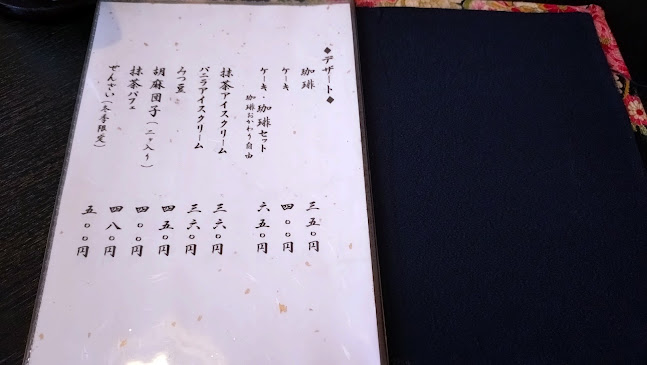 ◆デザート◆
珈琲 三五〇円
ケーキ 四〇〇円
ケーキ・珈琲セット 六五〇円
珈琲おかわり自由
抹茶アイスクリーム 三六〇円
バニラアイスクリーム 三六〇円
みつ豆 四五〇円
胡麻団子(二ヶ入り) 四〇〇円
抹茶パフェ 四八〇円
ぜんざい(冬季限定) 五〇〇円